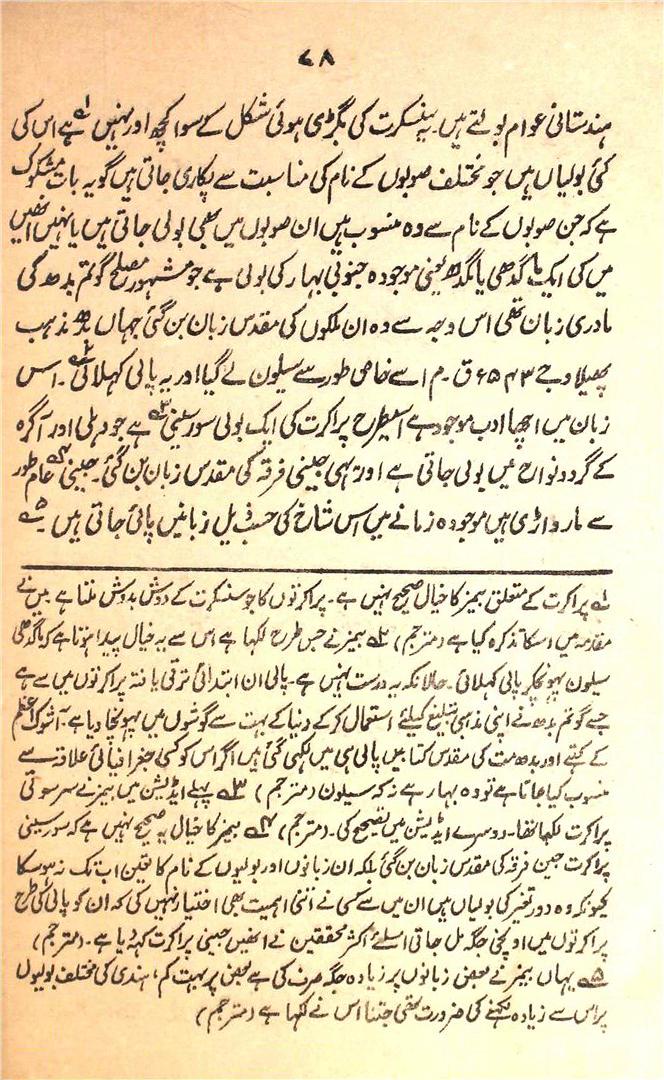 ۷۸
ہندستانی عوام بولتے ہیں۔ یہ سنسکرت کی بگڑی ہوئی شکل کے سوا کچھ اور نہیں ۱؎ ہے اس کی
کئی بولیاں ہیں جو مختلف صوبوں کے نام کی مناسبت سے پکاری جاتی ہیں گو یہ بات مشکوک
ہے کہ جن صوبوں کے نام سے وہ منسوب ہیں ان صوبوں میں بھی بولی جاتی ہیں یا نہیں انھیں
میں کی ایک ماگدھی یا مگدھ یعنی موجودہ جنوبی بہار کی بولی ہے جو مشہور مصلح گوتم بدھ کی
مادری زبان تھی اس وجہ سے وہ ان ملکوں کی مقدس زبان بن گئی جہاں بدھ مذہب
پھیلا وجے ۵۴۳ ق۔م اسے خاص طور سے سیلون لے گیا اور یہ پالی کہلائی ۲؎۔ اس
زبان میں اچھا ادب موجود ہے اسیطرح پراکرت کی ایک بولی سورسینی ۳؎ ہے جو دہلی اور آگرہ
کے گرد و نواح میں بولی جاتی ہے اور یہی جینی فرقہ کی مقدس زبان بن گئی۔ جینی ۴؎ عام طور
سے مارواڑی ہیں موجودہ زمانے میں اس شاخ کی حسب ذیل زبانیں پائی جاتی ہیں ۔ ۵؎
۱؎ پراکرت کے متعلق بیمز کا خیال صحیح نہیں ہے۔ پراکرتوں کا جو سنسکرت کے دوش بدوش ملتا ہے میں نے
مقدمہ میں اسکا تذکرہ کیا ہے (مترجم) ۲؎ بیمز نے جس طرح لکھا ہے اس سے یہ خیال پیدا ہوتا ہے کہ ماگدھی
سیلون پہونچکر پالی کہلائی۔ حالانکہ یہ درست نہیں ہے۔ پالی ان ابتدائی ترقی یافتہ پراکرتوں میں سے ہے
جسے گوتم بدھ نے اپنی مذہبی تبلیغ کیلئے استعمال کر کے دنیا کے بہت سے گوشوں میں پہونچا دیا ہے۔ آشوک اعظم
کے کتبے اور بدھ مت کی مقدس کتابیں پالی ہی میں لکھی گئی ہیں اگر اس کو کسی جغرافیائی علاقہ سے
منسوب کیا جاتا ہے تو وہ بہار ہے نہ کہ سیلون (مترجم) ۳؎ پہلے ایڈیشن میں بیمز نے سرسوتی
پراکرت لکھا تھا۔ دوسرے ایڈیشن میں تصحیح کی۔ (مترجم) ۴؎ بیمز کا خیال یہ صحیح نہیں ہے کہ سورسینی
پراکرت جین فرقہ کی مقدس زبان بن گئی بلکہ ان زبانوں اور بولیوں کے نام کا تعین اب تک نہ ہو سکا
کیونکہ وہ دور تغیر کی بولیاں ہیں ان میں سے کسی نے اتنی اہمیت بھی اختیار نہیں کی کہ ان کو پالی کی طرح
پراکرتوں میں اونچی جگہ مل جاتی اسلئے اکثر محققین نے انھیں جینی پراکرت کہدیا ہے۔ (مترجم)
۵؎ یہاں بیمز نے بعض زبانوں پر زیادہ جگہ صرف کی ہے بعض پر بہت کم، ہندی کی مختلف بولیوں
پر اس سے زیادہ لکھنے کی ضرورت تھی جتنا اس نے لکھا ہے (مترجم)